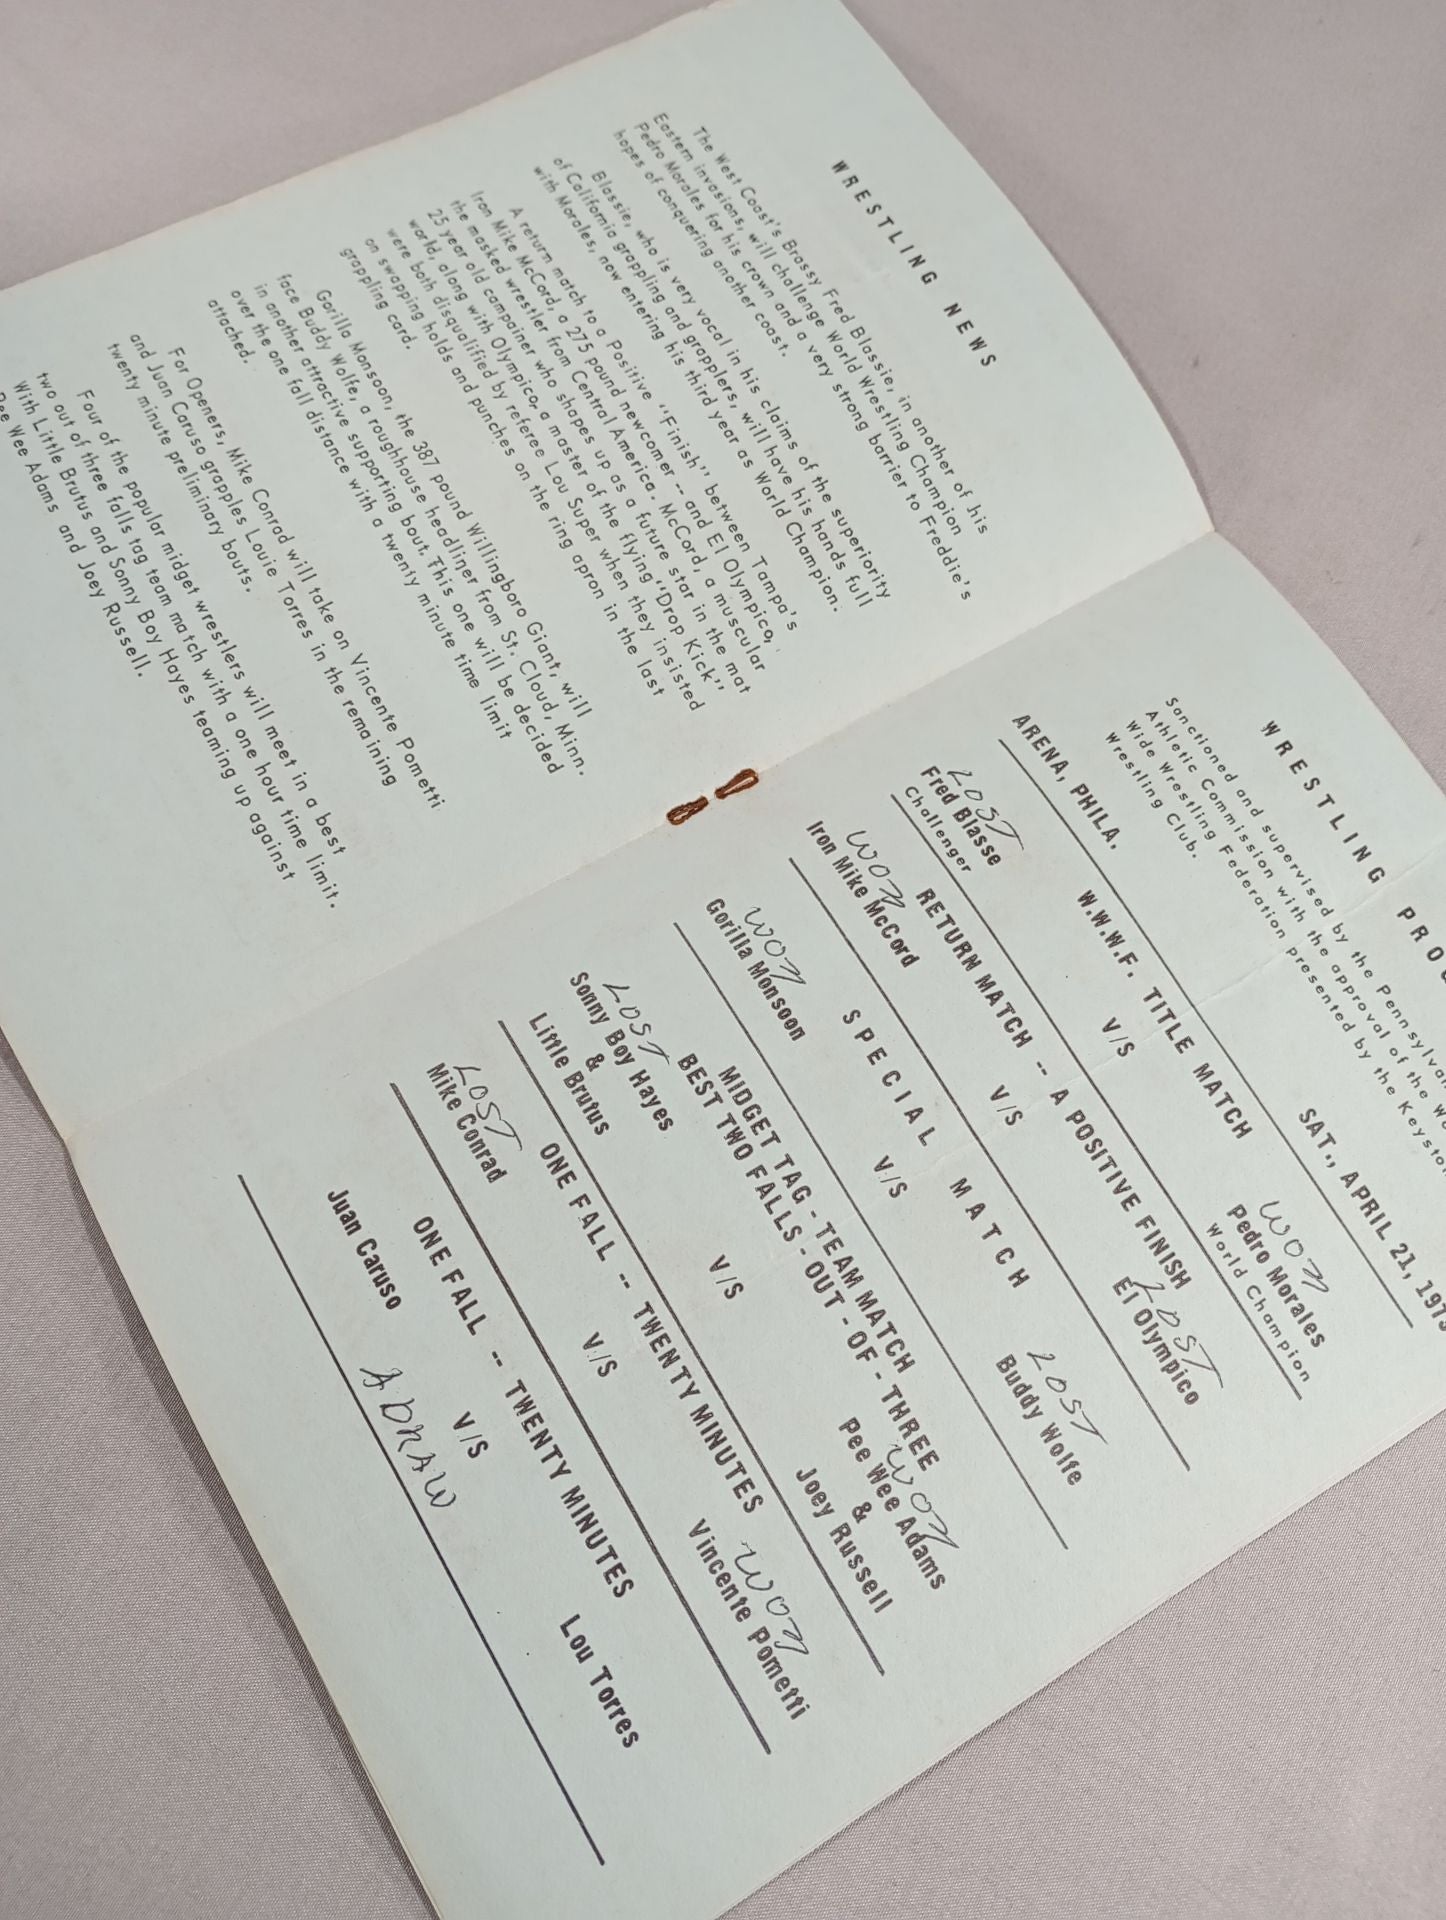 WRESTLING NEWS
The West Coast's Brassy Fred Blassie, in another of his
Eastern invasions, will challenge World Wrestling Champion
Pedro Morales for his crown and a very strong barrier to Freddie's
hopes of conquering another coast.
Blassie, who is very vocal in his claims of the superiority
of California grappling and grapplers, will have his hands full
with Morales, now entering his third year as World Champion.
A return match to a Positive "Finish" between Tampa's
Iron Mike McCord, a 275 pound newcomer -- and El Olympico,
the masked wrestler from Central America. McCord, a muscular
25 year old campaigner who shapes up as a future star in the mat
world, along with Olympico, a master of the flying "Drop Kick"
were both disqualified by referee Lou Super when they insisted
on swapping holds and punches on the ring apron in the last
grappling card.
Gorilla Monsoon, the 387 pound Willingboro Giant, will
face Buddy Wolfe, a roughhouse headliner from St. Cloud, Minn.
in another attractive supporting bout. This one will be decided
over the one fall distance with a twenty minute time limit
attached.
For Openers, Mike Conrad will take on Vincente Pometti
and Juan Caruso grapples Louie Torres in the remaining
twenty minute preliminary bouts.
Four of the popular midget wrestlers will meet in a best
two out of three falls tag team match with a one hour time limit.
With Little Brutus and Sonny Boy Hayes teaming up against
Pee Wee Adams and Joey Russell.
WRESTLING
Sanctioned and supervised by the
Athletic Commission with the approval of the
Wide Wrestling Federation presented by the
Wrestling Club.
ARENA, PHILA. SAT., APRIL 21, 1973
W.W.W.F. TITLE MATCH
LOST WON
Fred Blasse V/S Pedro Morales
Challenger World Champion
RETURN MATCH -- A POSITIVE FINISH
WON LOST
Iron Mike McCord V/S El Olympico
SPECIAL MATCH
WON LOST
Gorilla Monsoon V/S Buddy Wolfe
MIDGET TAG - TEAM MATCH
BEST TWO FALLS - OUT - OF - THREE
LOST WON
Sonny Boy Hayes Pee Wee Adams
& V/S &
Little Brutus Joey Russell
ONE FALL -- TWENTY MINUTES
LOST WON
Mike Conrad V/S Vincente Pometti
ONE FALL -- TWENTY MINUTES
Juan Caruso V/S Lou Torres
A DRAW